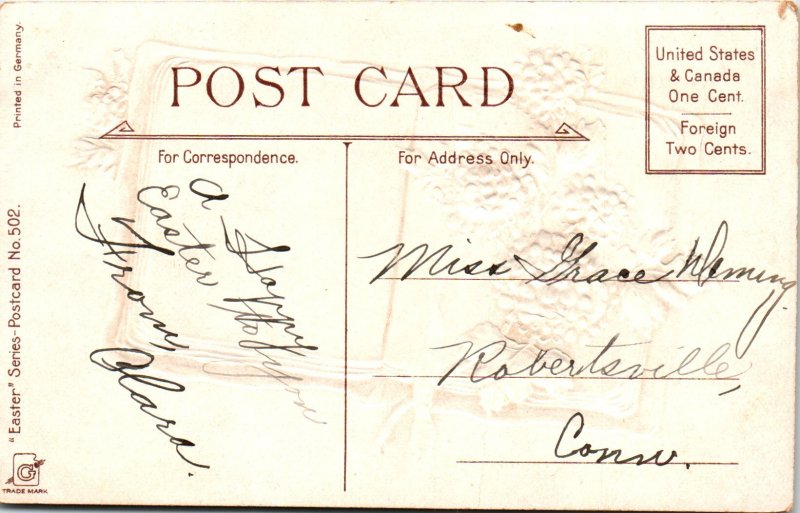 POST CARD
United States
& Canada
One Cent.
Foreign
Two Cents.
For Correspondence.
For Address Only.
A Happy
Easter to you
From
Clara.
Miss Grace Deming,
Robertsville,
Conn.
Printed in Germany.
"Easter" Series-Postcard No. 502.
G
TRADE MARK